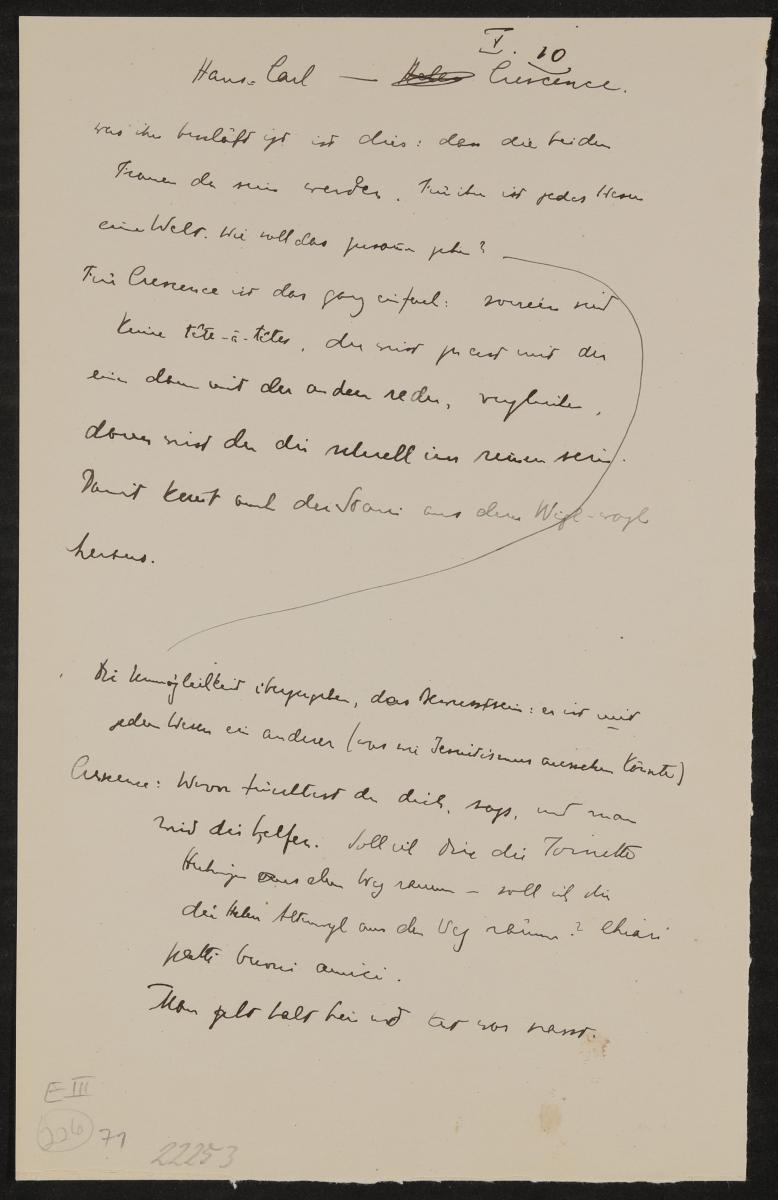 I. 10
Hans-Carl — Crescence.
was ihn beschäftigt ist dies: dass die beiden
Frauen da sein werden. Für ihn ist jedes Wesen
eine Welt. Wie soll das zusammen gehn?
Für Crescence ist das ganz einfach: soireen sind
keine tête-à-têtes, du wirst zuerst mit der
einen dann mit der anderen reden, vergleichen,
dann wirst du dir schnell im reinen sein.
Damit kommt auch der Stani aus dem Wigl-wagl
heraus.
Die Unmöglichkeit überzugehen, das Bewusstsein: er ist mit
jedem Wesen ein anderer (was wie Jesuitismus aussehen könnte)
Crescence: Wovor fürchtest du dich, sags, und man
wird dir helfen. Soll ich Dir die Toinette
Hechingen aus dem Weg räumen – soll ich dir
die Helen Altenwyl aus dem Weg räumen? Chiari
patti buoni amici.
Man geht halt hin und tut was passt.
E III
226
71
22253